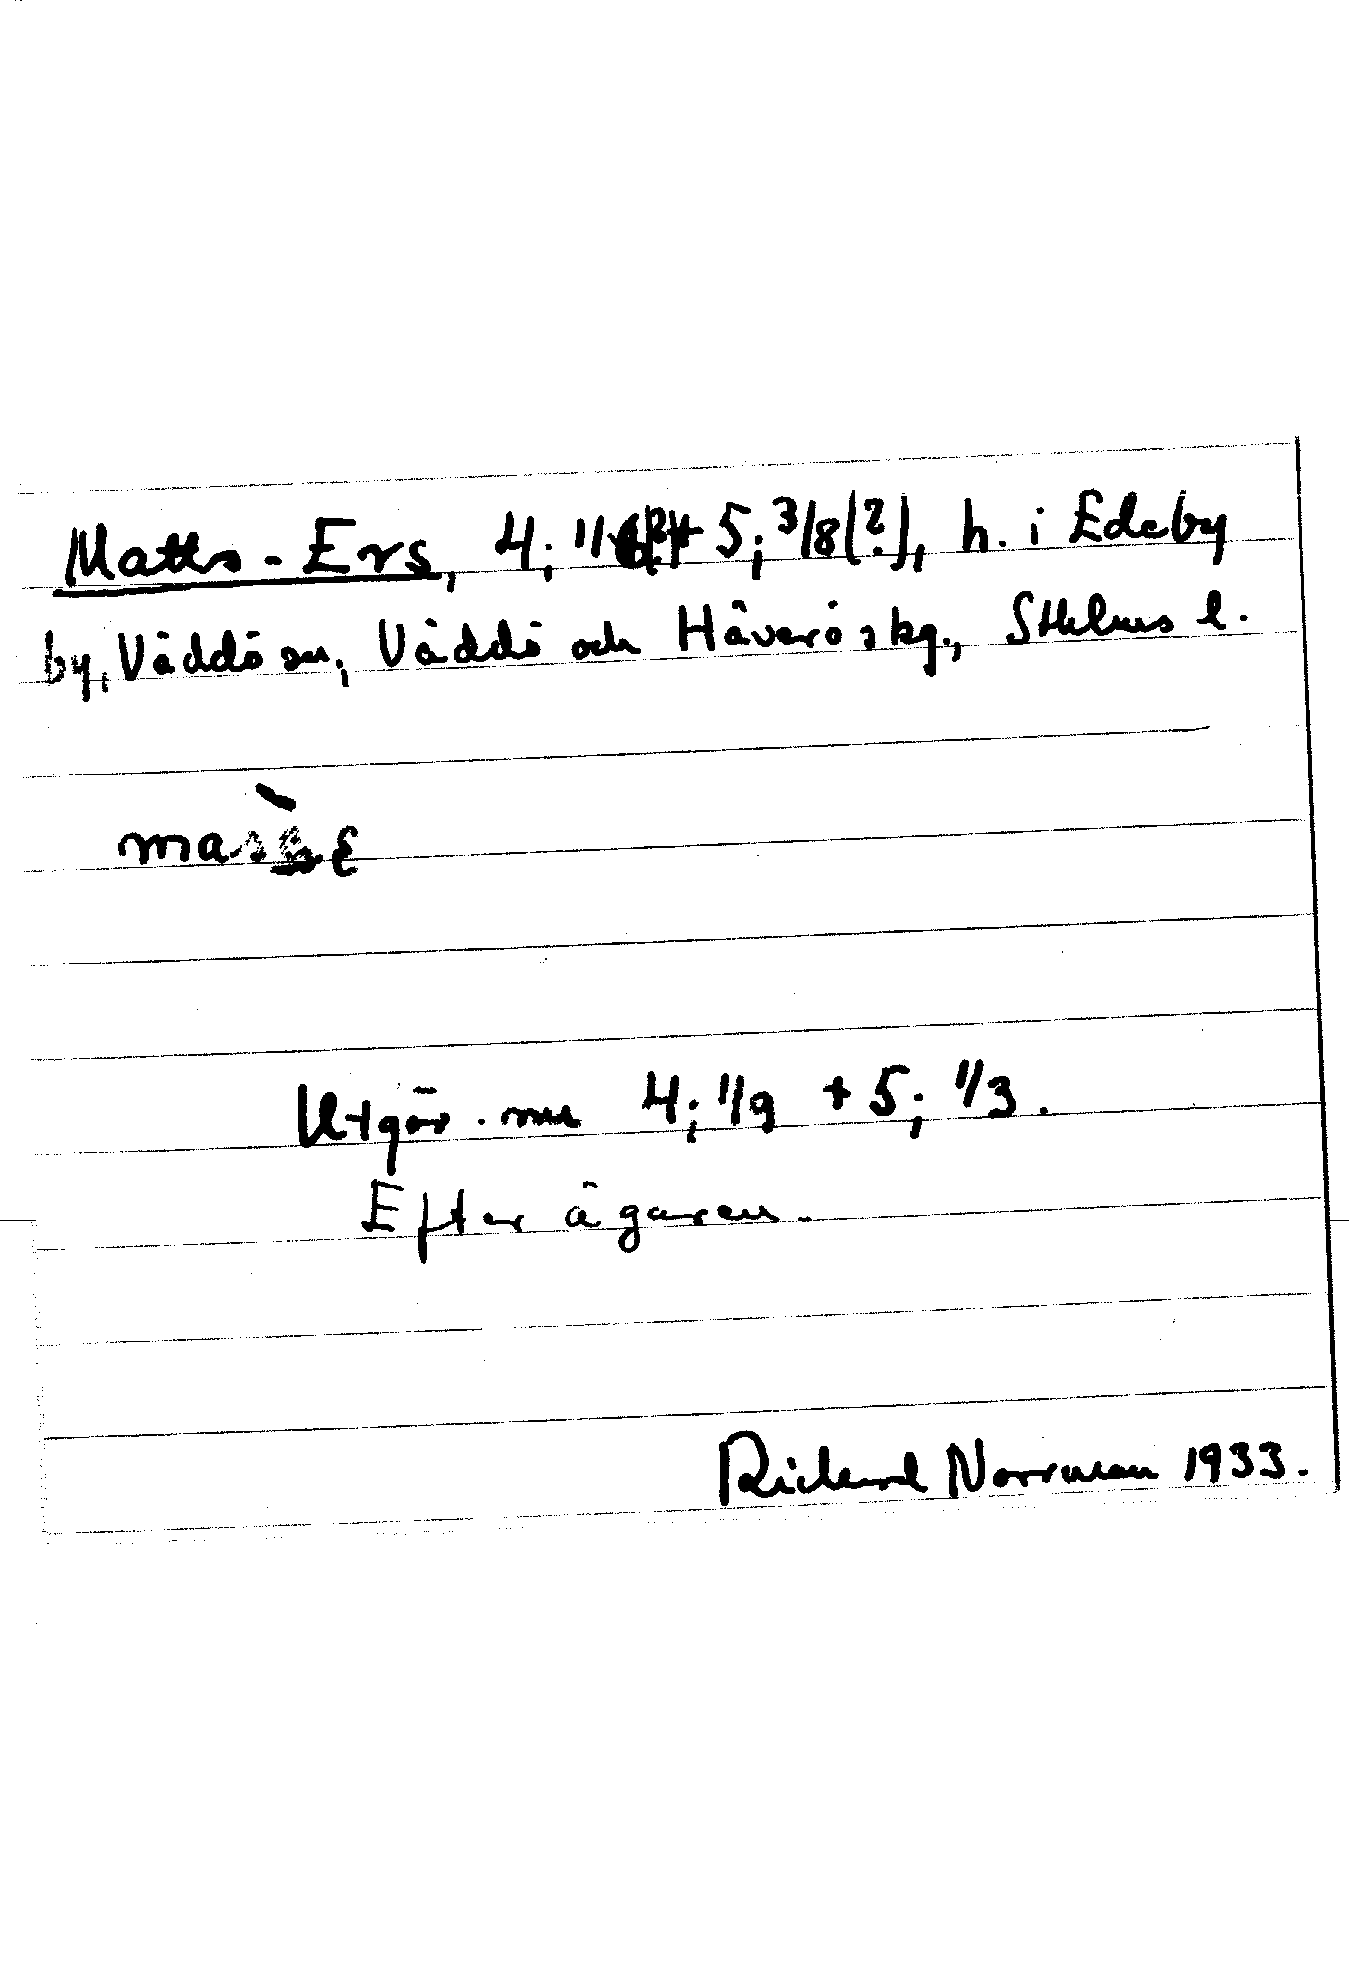 Matts-Ers, 4; 1/6(?)+ 5; 3/8(?), h. i Edeby
by, Väddö sn, Väddö och Häverö skg., Sthlms l.
Utgör nu 4; 1/9 + 5; 1/3.
Efter ägaren.
Rickard Norrman 1933.